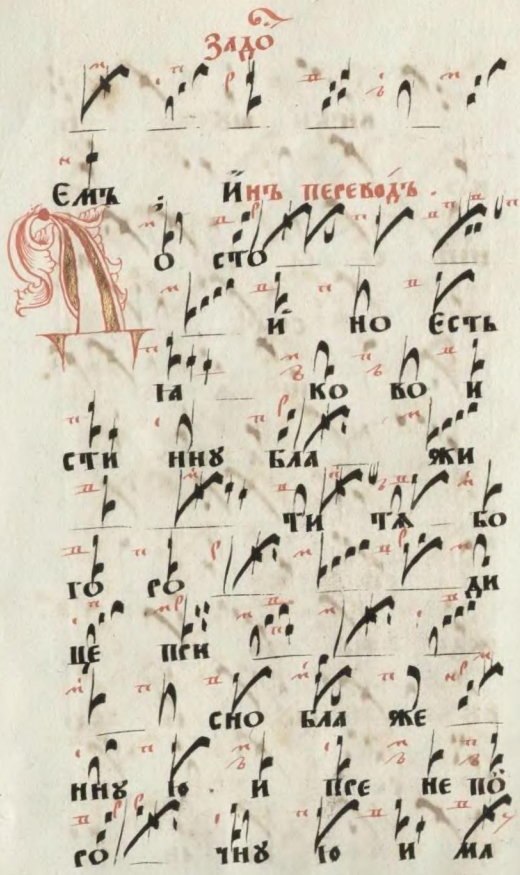 Задо
емъ Йнъ переводъ.
Д о сто
й но есть
ıа ко во и
сти ннꙋ бла жи
ти тѧ бо
го ро ди
це при
сно бла же
ннꙋ ю и пре не по
ро чнꙋ ю и ма